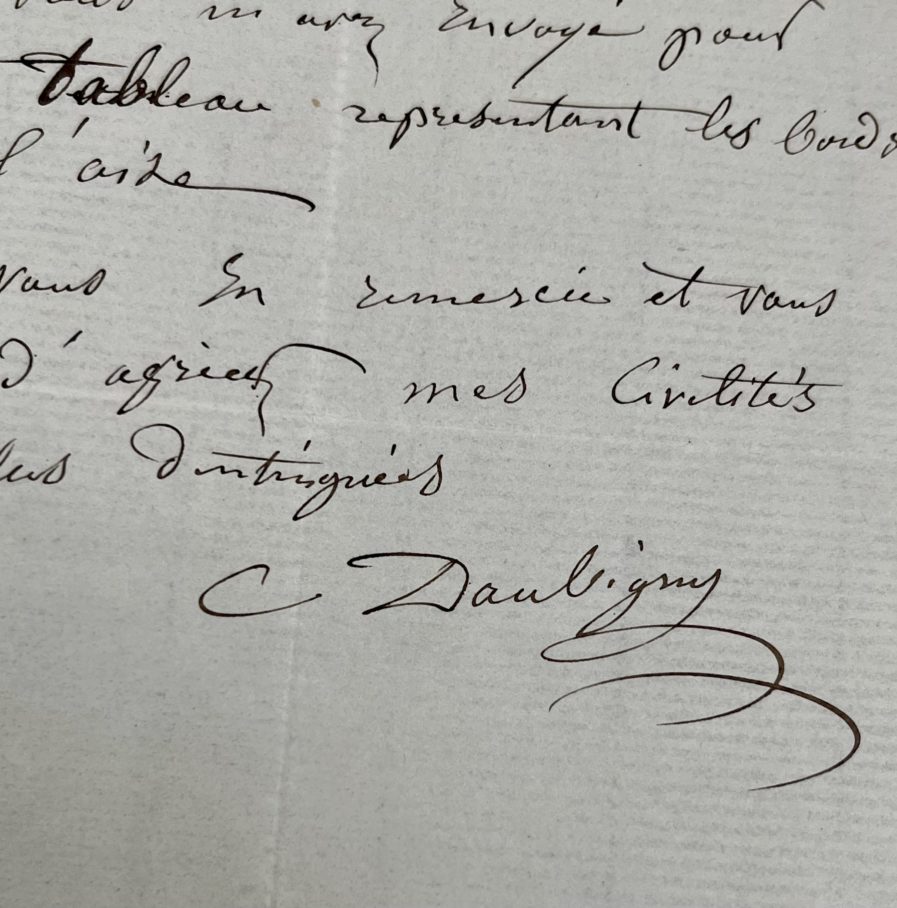 vous m'avez Envoyé pour
tableau representant les bords
l'oise
vous En remercie et vous
d'agréez mes Civilités
plus distinguées
C Daubigny